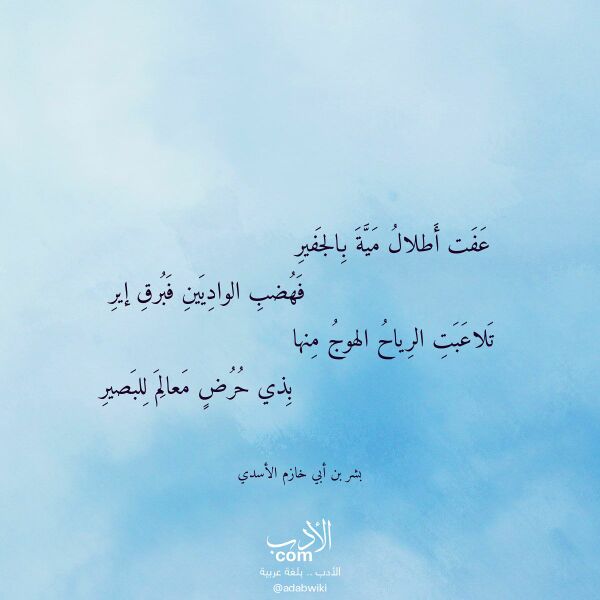 عَفَت أَطلالُ مَيَّةَ بِالجَفيرِ
فَهُضبِ الوادِيَينِ فَبُرقِ إيرِ
تَلاعَبَتِ الرِياحُ الهوجُ مِنها
بِذي حُرُضٍ مَعالِمَ لِلبَصيرِ
بشر بن أبي خازم الأسدي
الأدب
com
الأدب .. بلغة عربية
@adabwiki